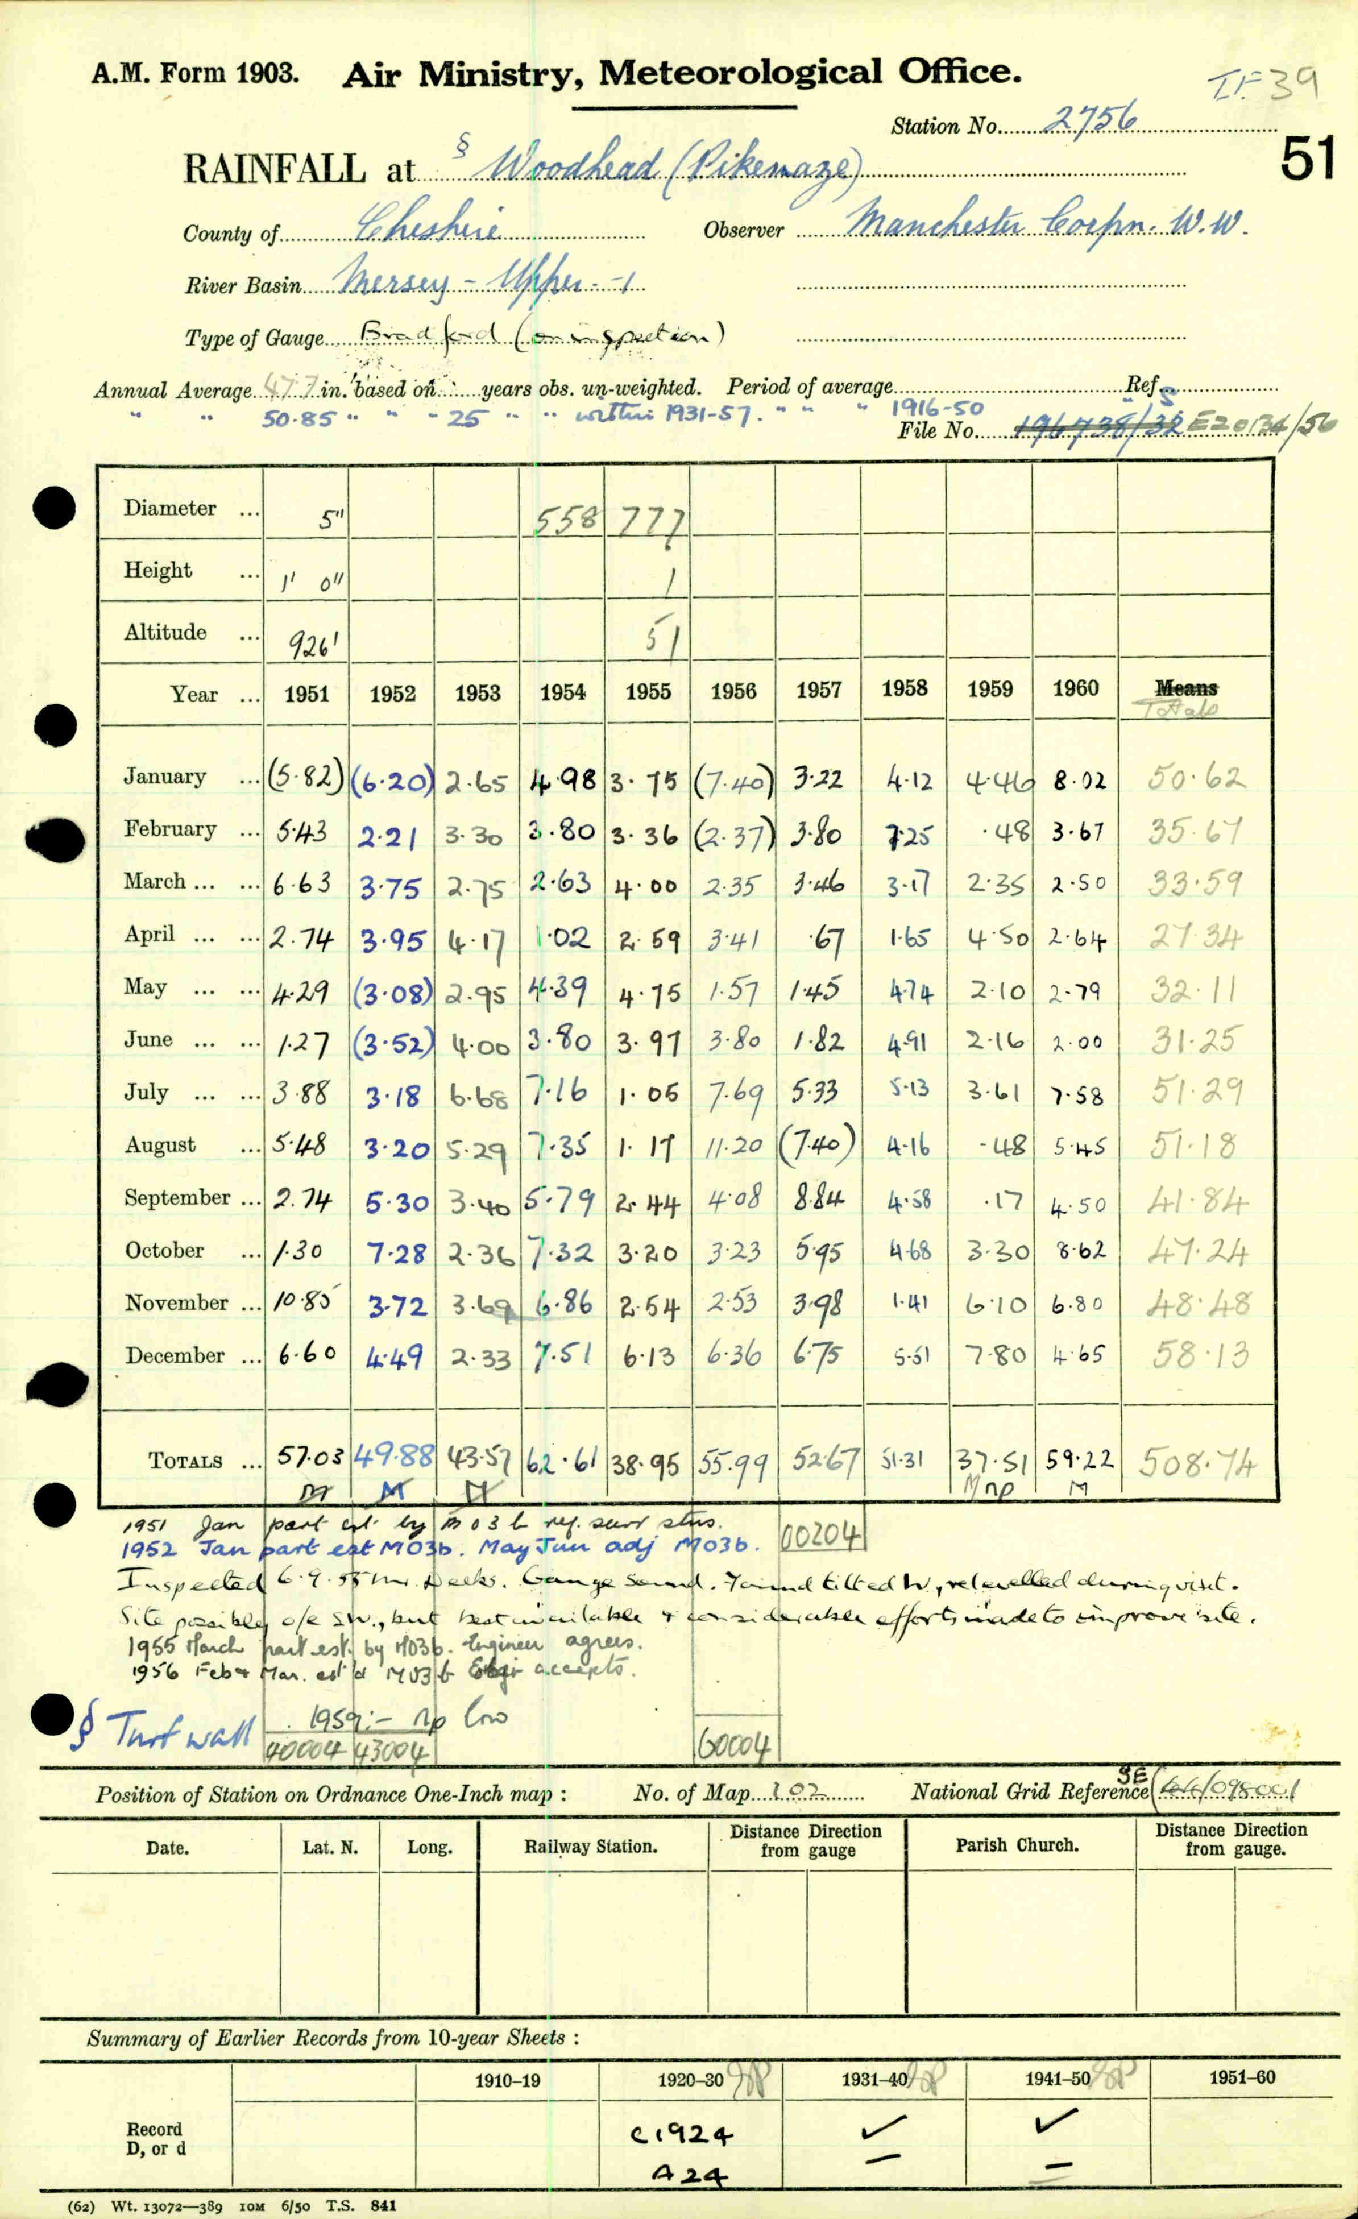 A.M. Form 1903. Air Ministry, Meteorological Office.
I.F 39
Station No. 2756
51
RAINFALL at § Woodhead (Pikenaze)
County of Cheshire Observer Manchester Corpn. W.W.
River Basin Mersey - Upper - 1
Type of Gauge Bradford (on inspection)
Annual Average 47.7 in. based on years obs. un-weighted. Period of average Ref. S
" " 50.85 " " - 25 " " within 1931-57. " " " 1916-50
File No. 196738/32 E20134/56
Diameter ... 5" 558 777
Height ... 1' 0" 1
Altitude ... 926' 51
Year ... 1951 1952 1953 1954 1955 1956 1957 1958 1959 1960 Means Totals
January ... (5.82) (6.20) 2.65 4.98 3.75 (7.40) 3.22 4.12 4.46 8.02 50.62
February ... 5.43 2.21 3.30 3.80 3.36 (2.37) 3.80 7.25 .48 3.67 35.67
March ... ... 6.63 3.75 2.75 2.63 4.00 2.35 3.46 3.17 2.35 2.50 33.59
April ... ... 2.74 3.95 4.17 1.02 2.59 3.41 .67 1.65 4.50 2.64 27.34
May ... ... 4.29 (3.08) 2.95 4.39 4.75 1.57 1.45 4.74 2.10 2.79 32.11
June ... ... 1.27 (3.52) 4.00 3.80 3.97 3.80 1.82 4.91 2.16 2.00 31.25
July ... ... 3.88 3.18 6.68 7.16 1.05 7.69 5.33 5.13 3.61 7.58 51.29
August ... 5.48 3.20 5.29 7.35 1.17 11.20 (7.40) 4.16 .48 5.45 51.18
September ... 2.74 5.30 3.40 5.79 2.44 4.08 8.84 4.58 .17 4.50 41.84
October ... 1.30 7.28 2.36 7.32 3.20 3.23 5.95 4.68 3.30 8.62 47.24
November ... 10.85 3.72 3.69 6.86 2.54 2.53 3.98 1.41 6.10 6.80 48.48
December ... 6.60 4.49 2.33 7.51 6.13 6.36 6.75 5.51 7.80 4.65 58.13
TOTALS ... 57.03 49.88 43.57 62.61 38.95 55.99 52.67 51.31 37.51 59.22 508.74
M M M M np M
1951 Jan part est by M03b ref. surr stns.
00204
1952 Jan part est M03b. May Jun adj M03b.
Inspected 6.9.55 Mr. Gauge sound. Found tilted W, relevelled during visit.
Site possibly o/e SW., but best available & considerable efforts made to improve site.
1955 March part est. by M03b. Engineer agrees.
1956 Feb & Mar. est'd M03b accepts.
§ Turf wall 1959:- np low
40004 43004 60004
Position of Station on Ordnance One-Inch map : No. of Map 102 National Grid Reference SE (44/098001
Date. Lat. N. Long. Railway Station. Distance Direction from gauge Parish Church. Distance Direction from gauge.
Summary of Earlier Records from 10-year Sheets :
1910–19 1920–30 1931–40 1941–50 1951–60
Record D, or d
c1924 ✓ ✓
A24 – –
(62) Wt. 13072—389 10M 6/50 T.S. 841